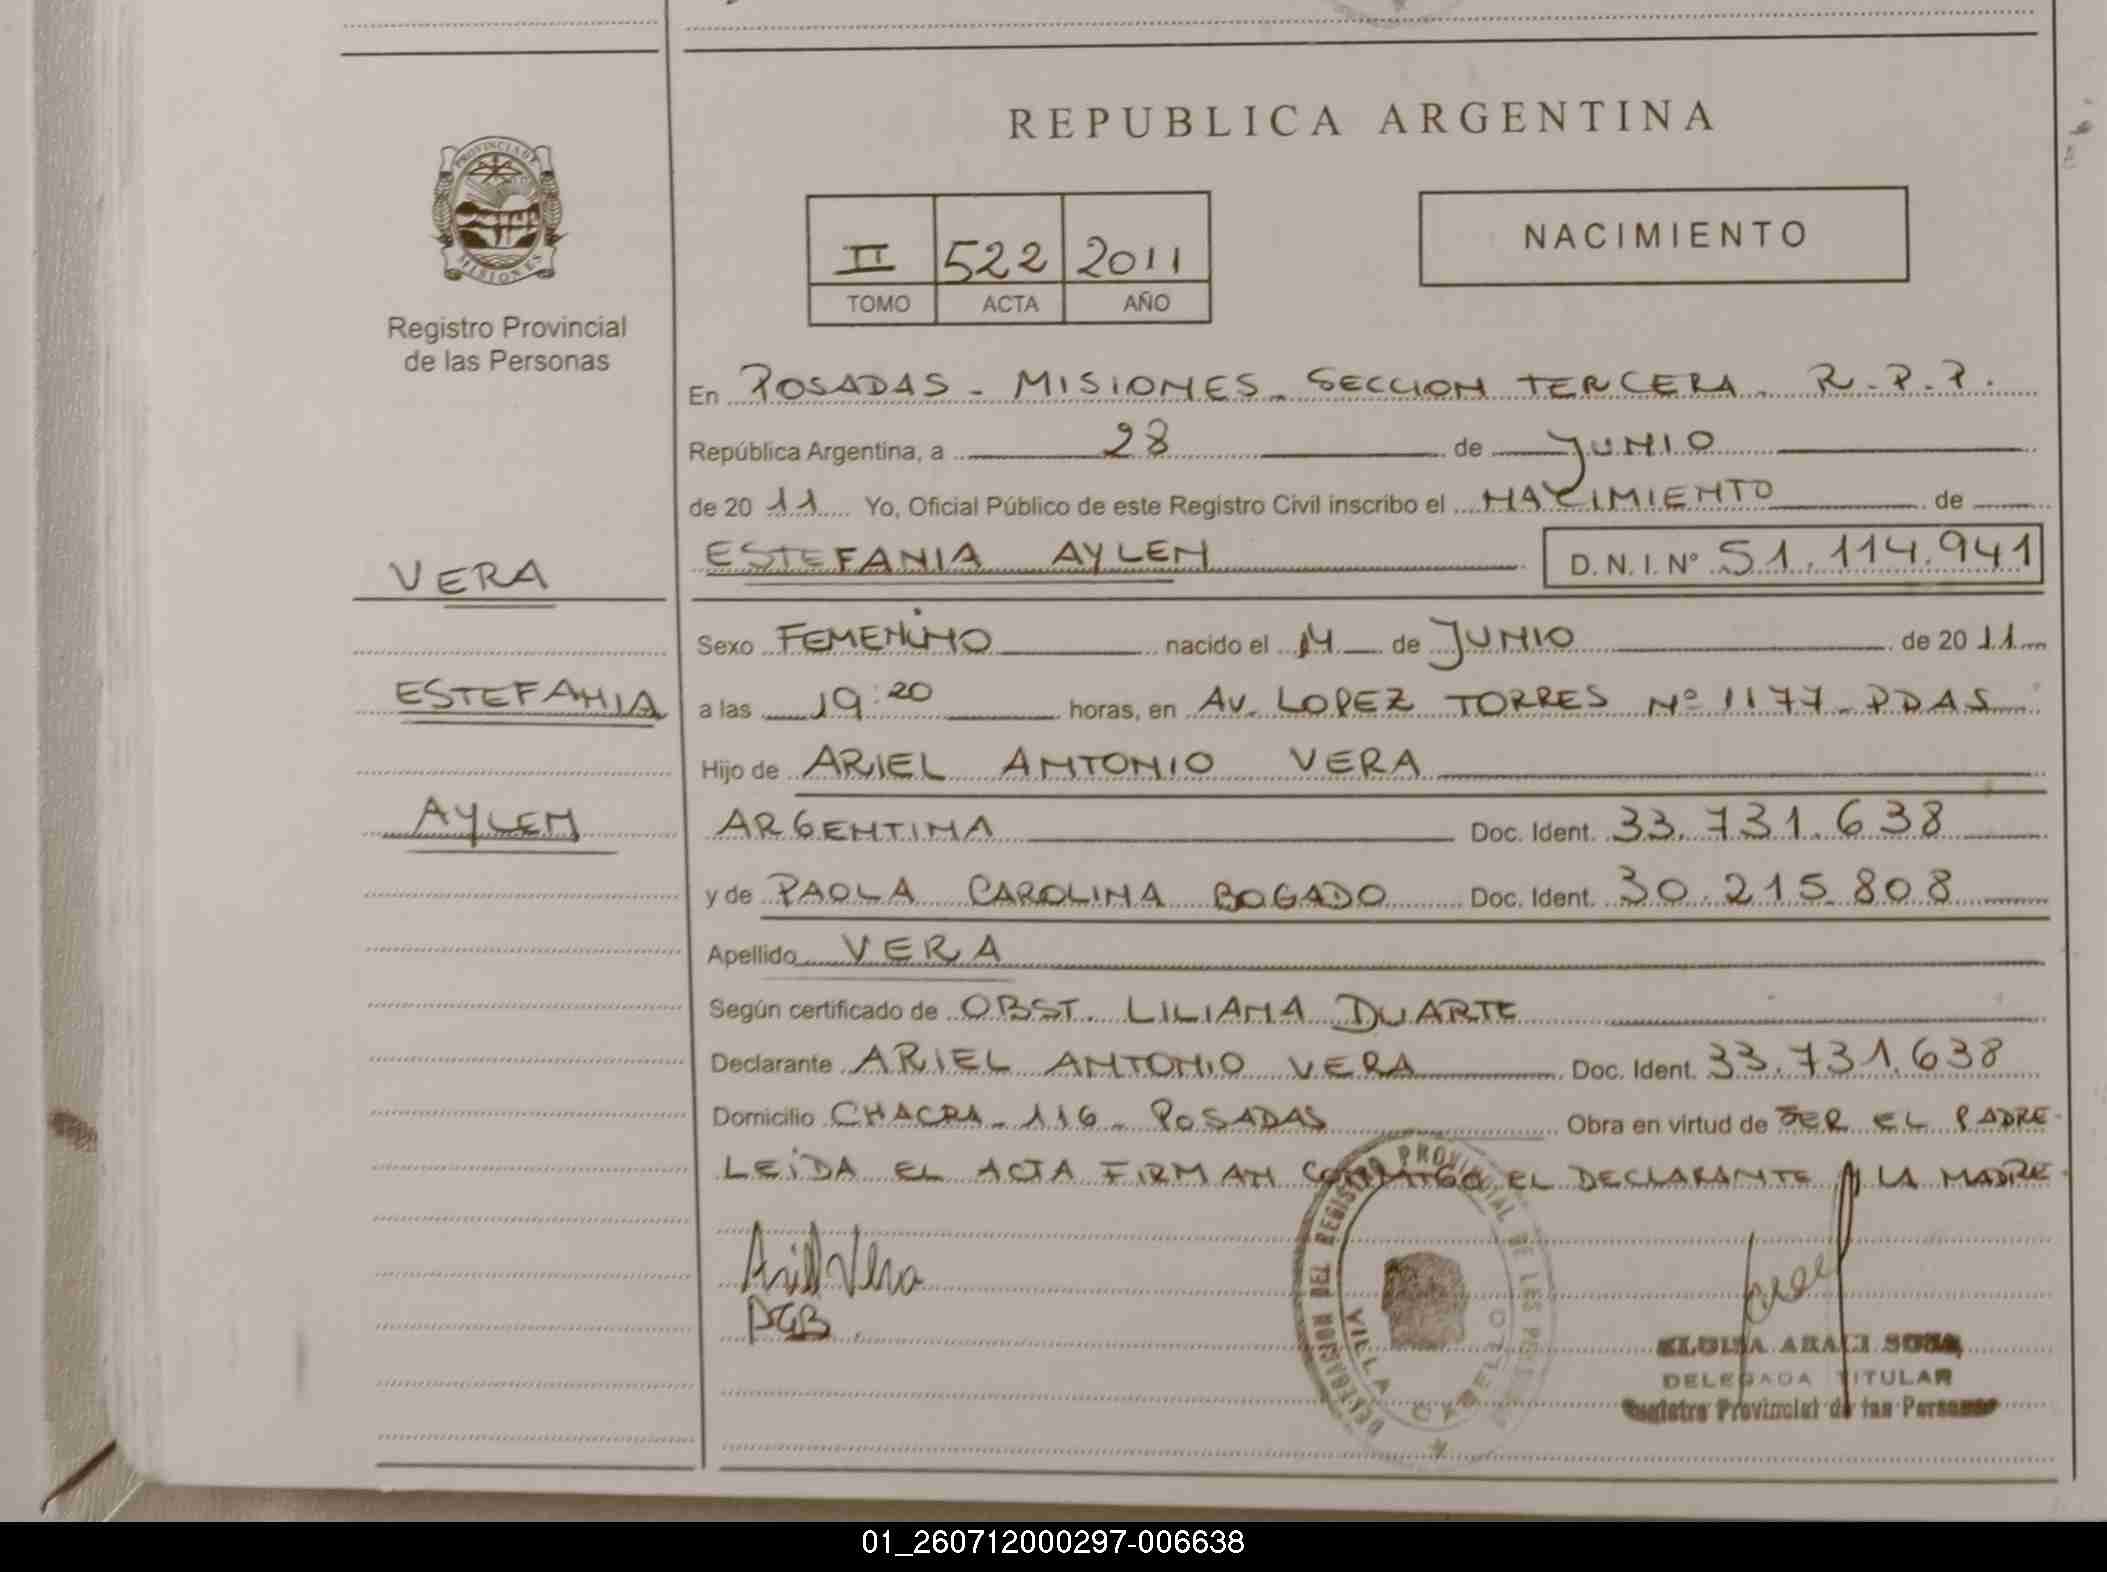 REPUBLICA ARGENTINA
PROVINCIA DE
MISIONES
Registro Provincial
de las Personas
II 522 2011
TOMO ACTA AÑO
NACIMIENTO
En POSADAS - MISIONES - SECCION TERCERA - R.P.P.
República Argentina, a 28 de JUNIO
de 20 11 Yo, Oficial Público de este Registro Civil inscribo el NACIMIENTO de
VERA
ESTEFANIA AYLEN D.N.I. Nº 51.114.941
Sexo FEMENINO nacido el 14 de JUNIO de 20 11
ESTEFANIA
a las 19:20 horas, en AV. LOPEZ TORRES Nº 1177 - PDAS
Hijo de ARIEL ANTONIO VERA
AYLEN
ARGENTINA Doc. Ident. 33.731.638
y de PAOLA CAROLINA BOGADO Doc. Ident. 30.215.808
Apellido VERA
Según certificado de OBST. LILIANA DUARTE
Declarante ARIEL ANTONIO VERA Doc. Ident. 33.731.638
Domicilio CHACRA - 116 - POSADAS Obra en virtud de SER EL PADRE-
LEIDA EL ACTA FIRMAN CONMIGO EL DECLARANTE y LA MADRE
Ariel Vera
PCB
DELEGACION DEL REGISTRO PROVINCIAL DE LAS
VILLA CABELLO
ELOISA ARACI SOSA
DELEGADA TITULAR
Registro Provincial de las Personas
01_260712000297-006638